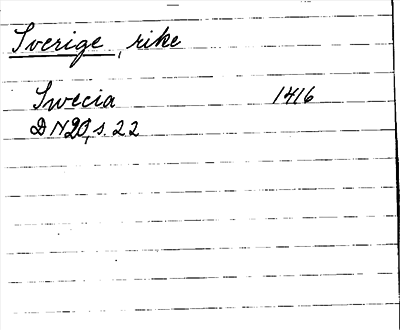 Sverige, rike
Swecia 1416
DN 20, s. 22